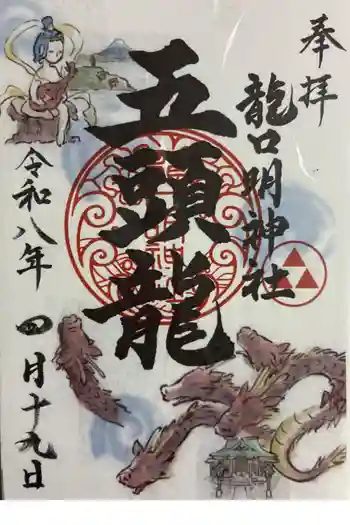 奉拝
龍口明神社
五頭龍
令和八年 四月十九日